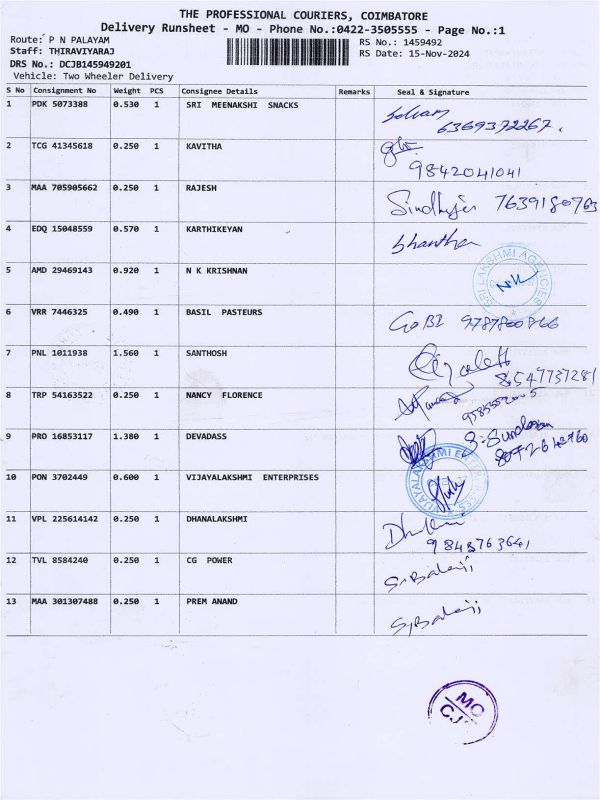 THE PROFESSIONAL COURIERS, COIMBATORE
Delivery Runsheet - MO - Phone No.:0422-3505555 - Page No.:1
Route: P N PALAYAM
RS No.: 1459492
Staff: THIRAVIYARAJ
RS Date: 15-Nov-2024
DRS No.: DCJB145949201
Vehicle: Two Wheeler Delivery
S No Consignment No Weight PCS Consignee Details Remarks Seal & Signature
1 PDK 5073388 0.530 1 SRI MEENAKSHI SNACKS
6369372267.
2 TCG 41345618 0.250 1 KAVITHA
9842041041
3 MAA 705905662 0.250 1 RAJESH 7639180763
4 EDQ 15048559 0.570 1 KARTHIKEYAN
5 AMD 29469143 0.920 1 N K KRISHNAN SRI LAKSHMI AGENCIES
6 VRR 7446325 0.490 1 BASIL PASTEURS GOBI 9787800866
7 PNL 1011938 1.560 1 SANTHOSH
8547737281
8 TRP 54163522 0.250 1 NANCY FLORENCE
9 PRO 16853117 1.380 1 DEVADASS
10 PON 3702449 0.600 1 VIJAYALAKSHMI ENTERPRISES
11 VPL 225614142 0.250 1 DHANALAKSHMI
9843763641
12 TVL 8584240 0.250 1 CG POWER S.Balaji
13 MAA 301307488 0.250 1 PREM ANAND S.Balaji
MO